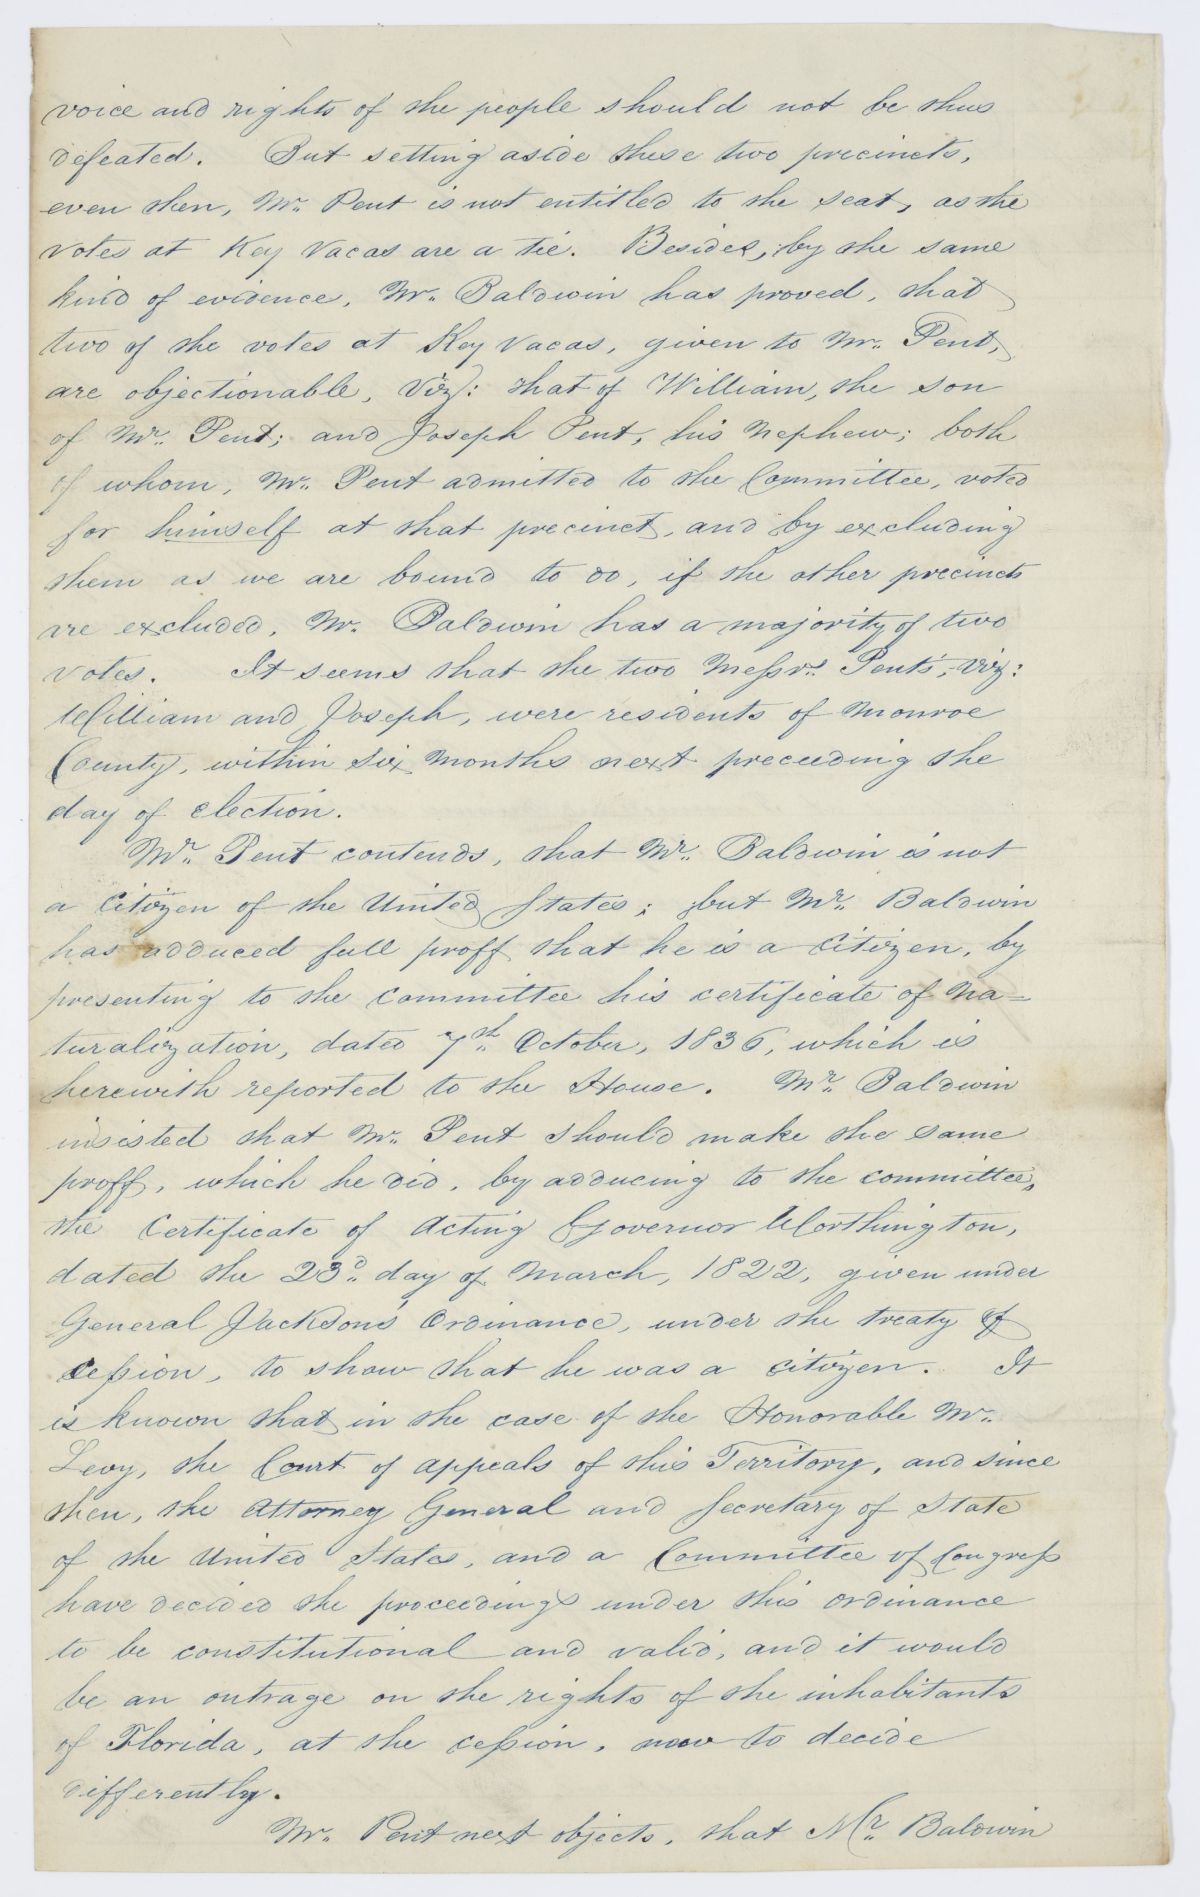 voice and rights of the people should not be thus
defeated. But setting aside these two precincts,
even then, Mr. Pent is not entitled to the seat, as the
votes at Key Vacas are a tie. Besides, by the same
kind of evidence, Mr. Baldwin has proved, that
two of the votes at Key Vacas, given to Mr. Pent,
are objectionable, Viz: that of William, the son
of Mr. Pent; and Joseph Pent, his Nephew; both
of whom, Mr. Pent admitted to the Committee, voted
for himself at that precinct, and by excluding
them as we are bound to do, if the other precincts
are excluded, Mr. Baldwin has a majority of two
votes. It seems that the two Messrs. Pents', Viz:
William and Joseph, were residents of Monroe
County, within Six Months next preceeding the
day of election.
Mr. Pent contends, that Mr. Baldwin is not
a Citizen of the United States; but Mr. Baldwin
has adduced full proff that he is a Citizen, by
presenting to the Committee his certificate of Na=
turalization, dated 7th October, 1836, which is
herewith reported to the House. Mr. Baldwin
insisted that Mr. Pent should make the same
proff, which he did, by adducing to the committee,
the Certificate of Acting Governor Worthington,
dated the 23d day of March, 1822, given under
General Jackson's Ordinance, under the treaty of
Cession, to show that he was a citizen. It
is known that in the case of the Honorable Mr.
Levy, the Court of appeals of this Territory, and since
then, the Attorney General and Secretary of State
of the United States, and a Committee of Congress
have decided the proceedings under this ordinance
to be constitutional and valid, and it would
be an outrage on the rights of the inhabitants
of Florida, at the cession, now to decide
differently.
Mr. Pent next objects, that Mr. Baldwin